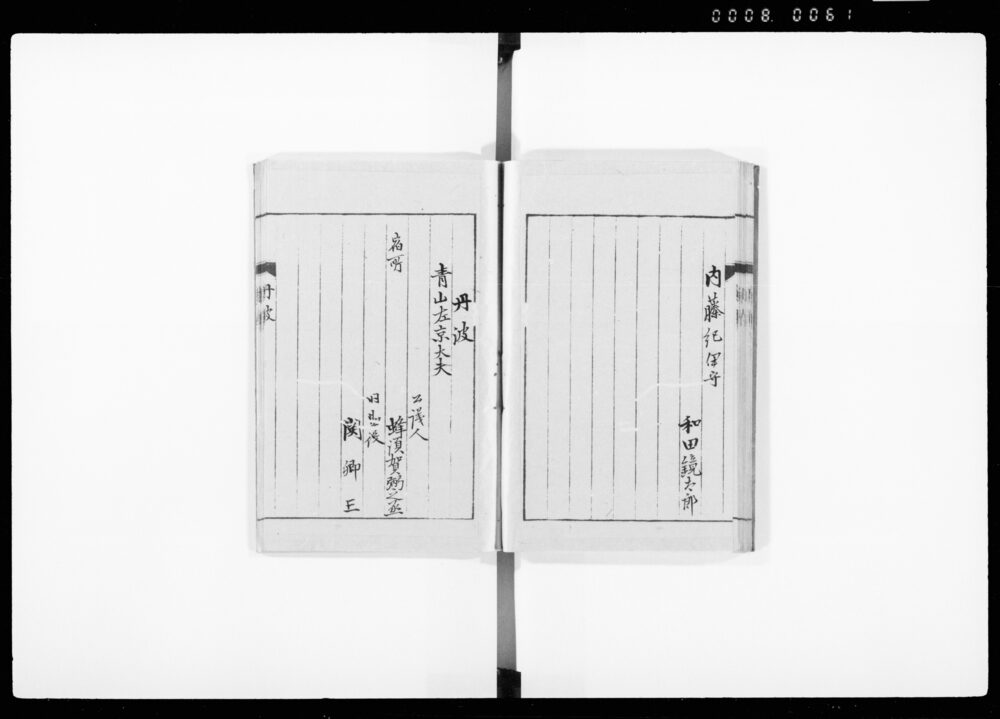 0008 0061
内藤紀伊守
和田鏡太郎
丹波
青山左京大夫
公議人
宿所
蜂須賀弼之丞
関卿三
丹波